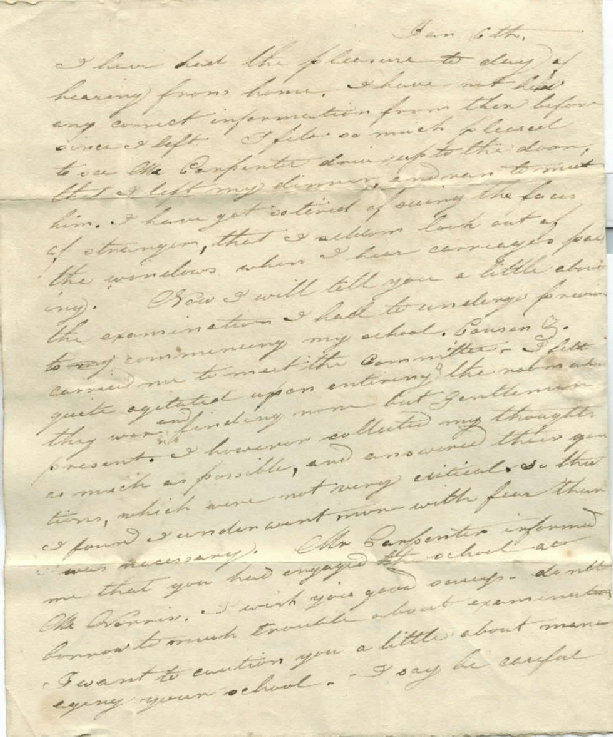 Jan 6th.
I have had the pleasure to day of
hearing from home. I have not had
any correct information from then before
since I left. I felt so much pleased
to see Mr Carpenter drive up to the door,
that I left my dinner, and ran to meet
him. I have got so tired of seeing the faces
of strangers, that I seldom look out of
the windows when I hear carriages pass
ing. Now I will tell you a little about
the examination I had to undergo previous
to my commencing my school. Cousin
carried me to meet the Committee. I felt
quite agitated upon entering the room where
they were, and finding none but Gentlemen
present. I however collected my thoughts
as much as possible, and answered their ques
tions, which were not very critical. so that
I found I underwent more with fear than
was necessary. Mr Carpenter informed
me that you had engaged school at
Mr I wish you good success. do not
borrow to much trouble about examination
I want to caution you a little about mana
ging your school. I say be careful